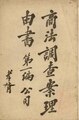 商法調查案理
由書 第一編 公司